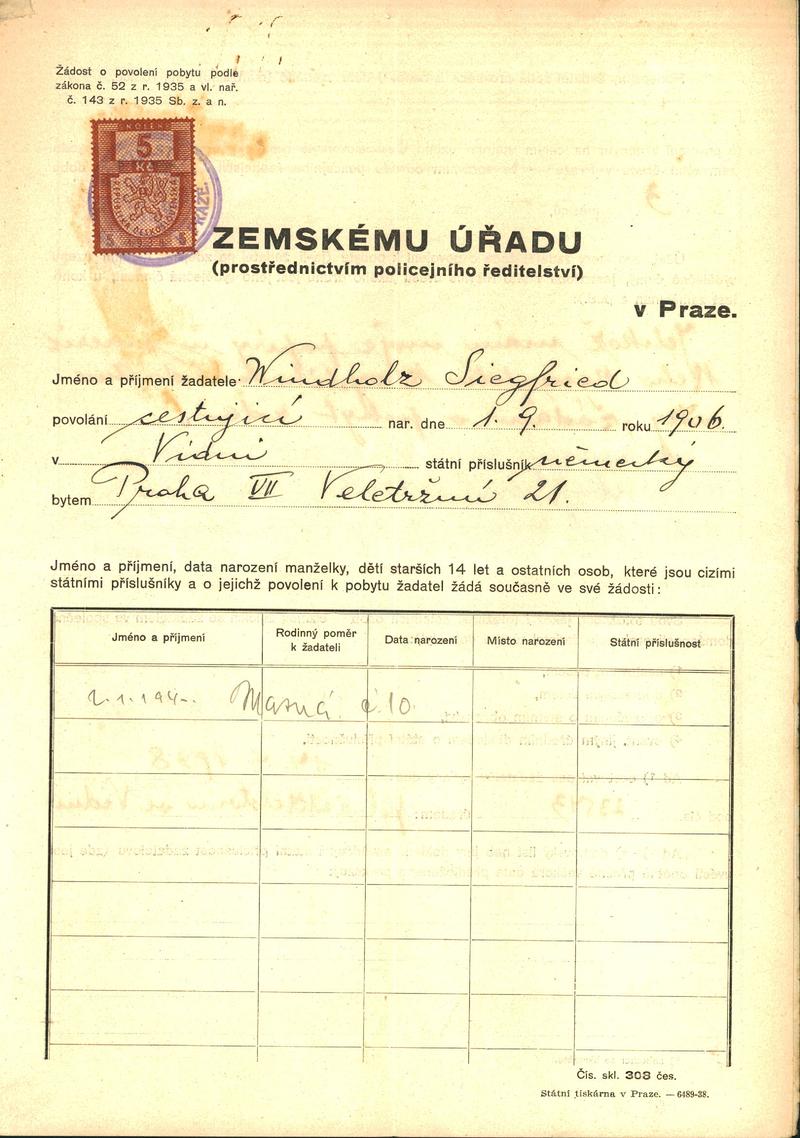 Žádost o povolení pobytu podle
zákona č. 52 z r. 1935 a vl. nař.
č. 143 z r. 1935 Sb. z. a n.
KOLEK
5
Kč
ZEMSKÉMU ÚŘADU
(prostřednictvím policejního ředitelství)
v Praze.
Jméno a příjmení žadatele Windholz Siegfried
povolání cestující nar. dne 1. 9. roku 1906.
v Vídni státní příslušník německý
bytem Praha VII Veletržní 21.
Jméno a příjmení, data narození manželky, dětí starších 14 let a ostatních osob, které jsou cizími
státními příslušníky a o jejichž povolení k pobytu žadatel žádá současně ve své žádosti:
Jméno a příjmení
Rodinný poměr
k žadateli
Data narození
Místo narození
Státní příslušnost
Masná č 10.
Čís. skl. 308 čes.
Státní tiskárna v Praze. — 6489-38.